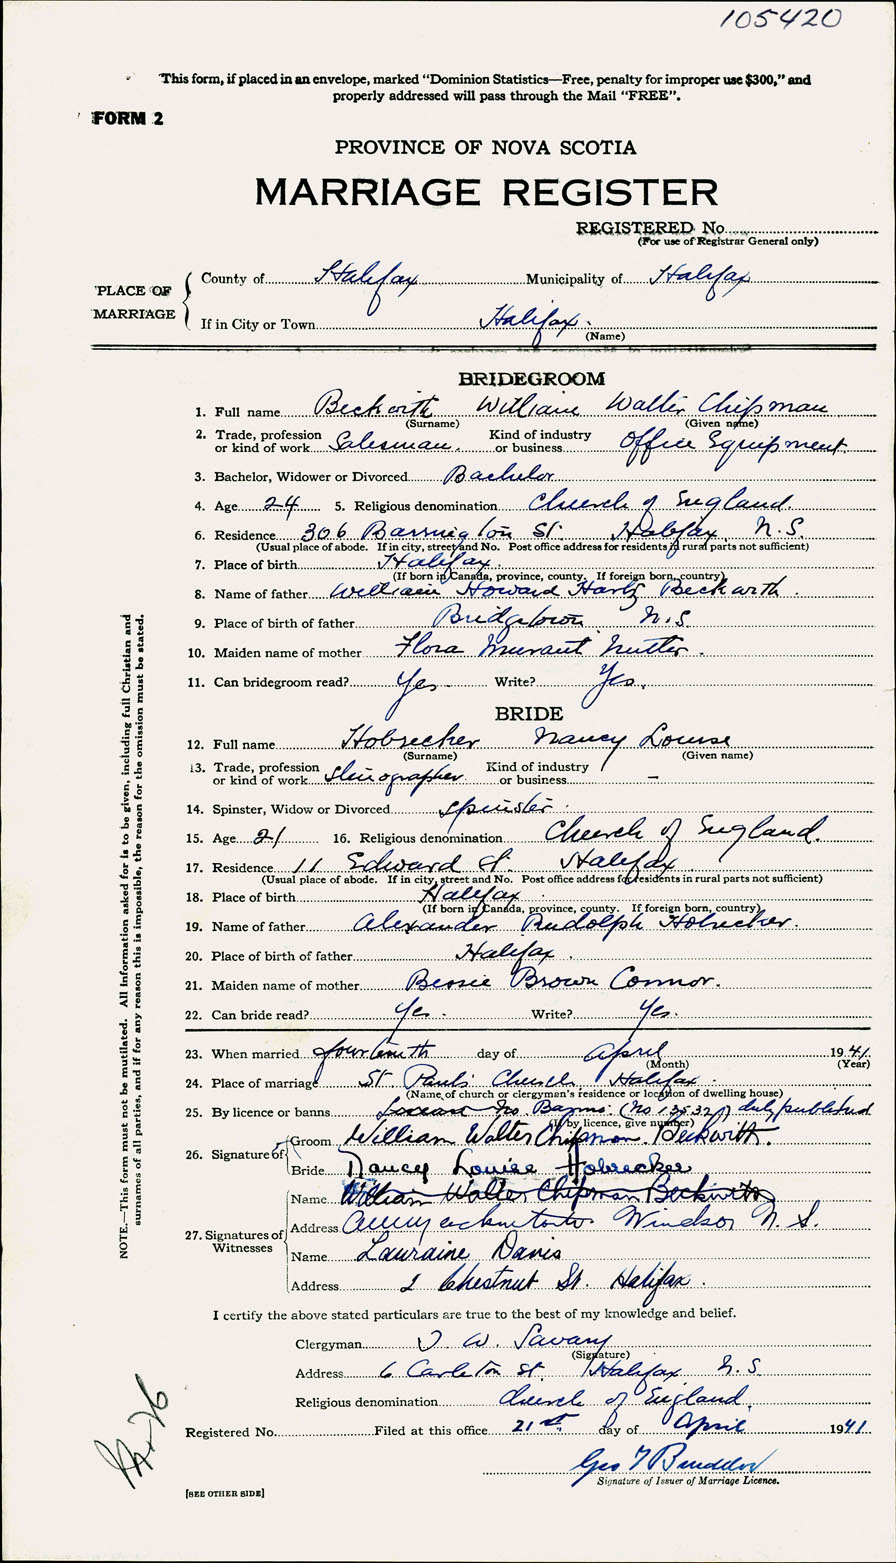 105420
"This form, if placed in an envelope, marked "Dominion Statistics—Free, penalty for improper use $300," and
properly addressed will pass through the Mail "FREE".
FORM 2
PROVINCE OF NOVA SCOTIA
MARRIAGE REGISTER
REGISTERED No
(For use of Registrar General only)
PLACE OF MARRIAGE
County of Halifax Municipality of Halifax
If in City or Town Halifax.
(Name)
BRIDEGROOM
1. Full name Beckwith William Walter Chipman
(Surname) (Given name)
2. Trade, profession or kind of work Salesman. Kind of industry or business Office Equipment.
3. Bachelor, Widower or Divorced Bachelor
4. Age 24 5. Religious denomination Church of England.
6. Residence 306 Barrington St. Halifax, N.S.
(Usual place of abode. If in city, street and No. Post office address for residents in rural parts not sufficient)
7. Place of birth Halifax.
(If born in Canada, province, county. If foreign born, country)
8. Name of father William Howard Beckwith.
9. Place of birth of father Bridgetown N.S.
10. Maiden name of mother Flora Nutter.
11. Can bridegroom read? Yes. Write? Yes.
BRIDE
12. Full name Hobrecker Nancy Louise
(Surname) (Given name)
13. Trade, profession or kind of work Stenographer. Kind of industry or business –
14. Spinster, Widow or Divorced Spinster.
15. Age 21 16. Religious denomination Church of England.
17. Residence 11 Edward St. Halifax.
(Usual place of abode. If in city, street and No. Post office address for residents in rural parts not sufficient)
18. Place of birth Halifax
(If born in Canada, province, county. If foreign born, country)
19. Name of father Alexander Rudolph Hobrecker.
20. Place of birth of father Halifax.
21. Maiden name of mother Bessie Brown Connor.
22. Can bride read? Yes. Write? Yes.
23. When married fourteenth day of April 1941
(Month) (Year)
24. Place of marriage St Paul's Church, Halifax.
(Name of church or clergyman's residence or location of dwelling house)
25. By licence or banns Banns. (No 13532) duly published
(If by licence, give number)
26. Signature of
Groom William Walter Chipman Beckwith.
Bride Nancy Louise Hobrecker
27. Signatures of Witnesses
Name William Walter Chipman Beckwith
Address Windsor N.S.
Name Lauraine Davis
Address 2 Chestnut St. Halifax.
I certify the above stated particulars are true to the best of my knowledge and belief.
Clergyman W. Savary
(Signature)
Address 6 Carleton St. Halifax N.S.
Religious denomination Church of England.
Registered No. Filed at this office 21st day of April 1941
Signature of Issuer of Marriage Licence.
[SEE OTHER SIDE]
NOTE.—This form must not be mutilated. All Information asked for is to be given, including full Christian and
surnames of all parties, and if for any reason this is impossible, the reason for the omission must be stated.